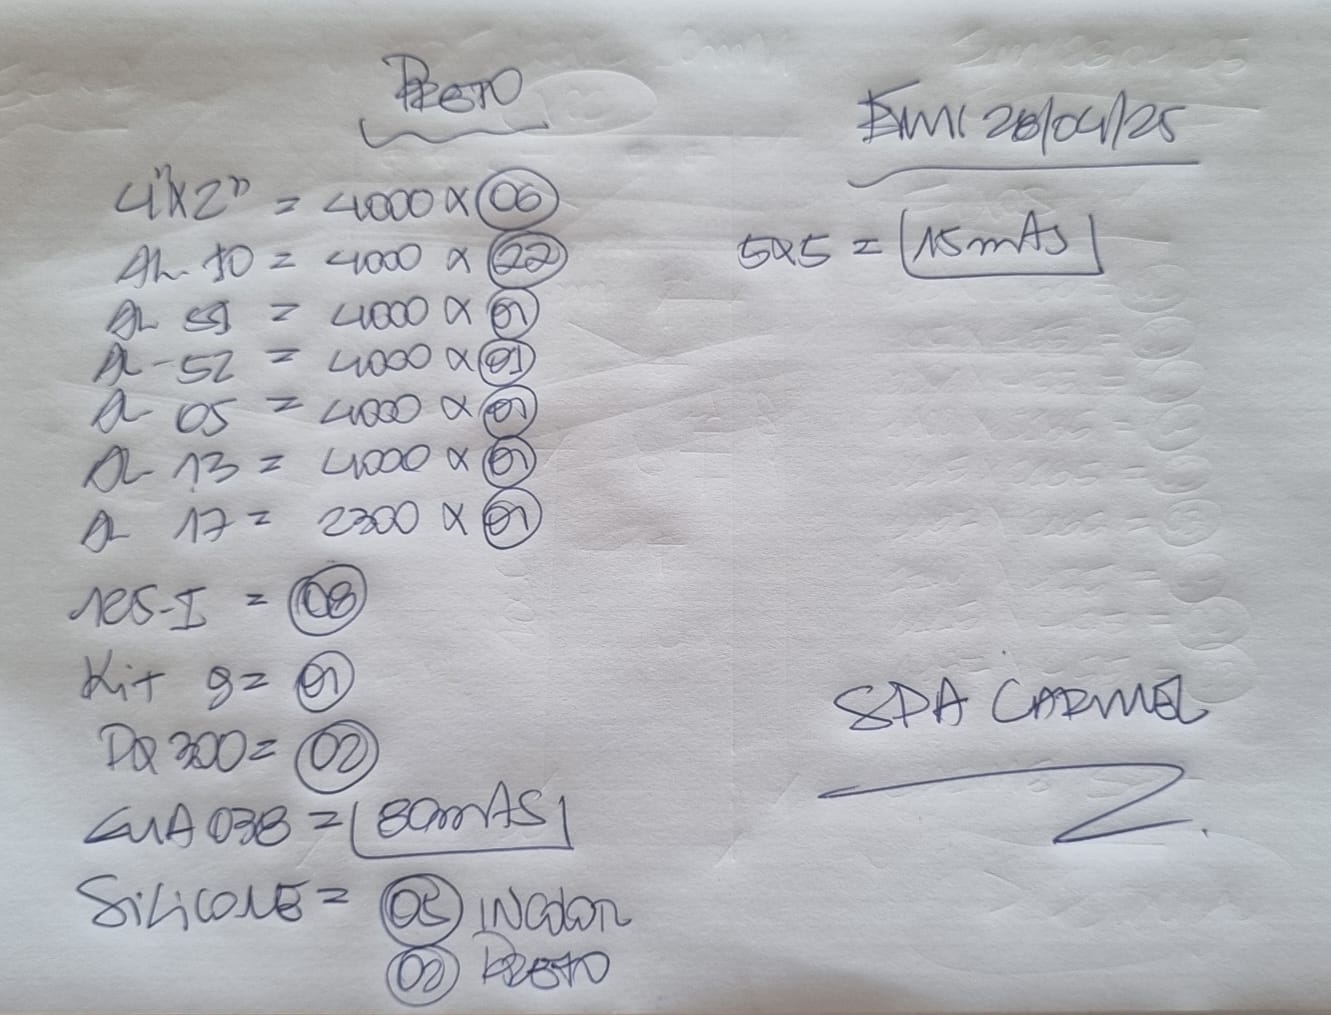 PRETO
EM 28/04/25
4"X2" = 4000 x 06
5x5 = 15 mAS
AL 10 = 4000 x 22
AL 59 = 4000 x 01
AL-52 = 4000 x 01
AL 05 = 4000 x 01
AL 13 = 4000 x 01
AL 17 = 2300 x 01
125-I = 08
Kit 9 = 01
SPA CARMEL
DQ 300 = 02
GUA 038 = 80 mAS
SILICONE = 05 INCOLOR
02 PRETO